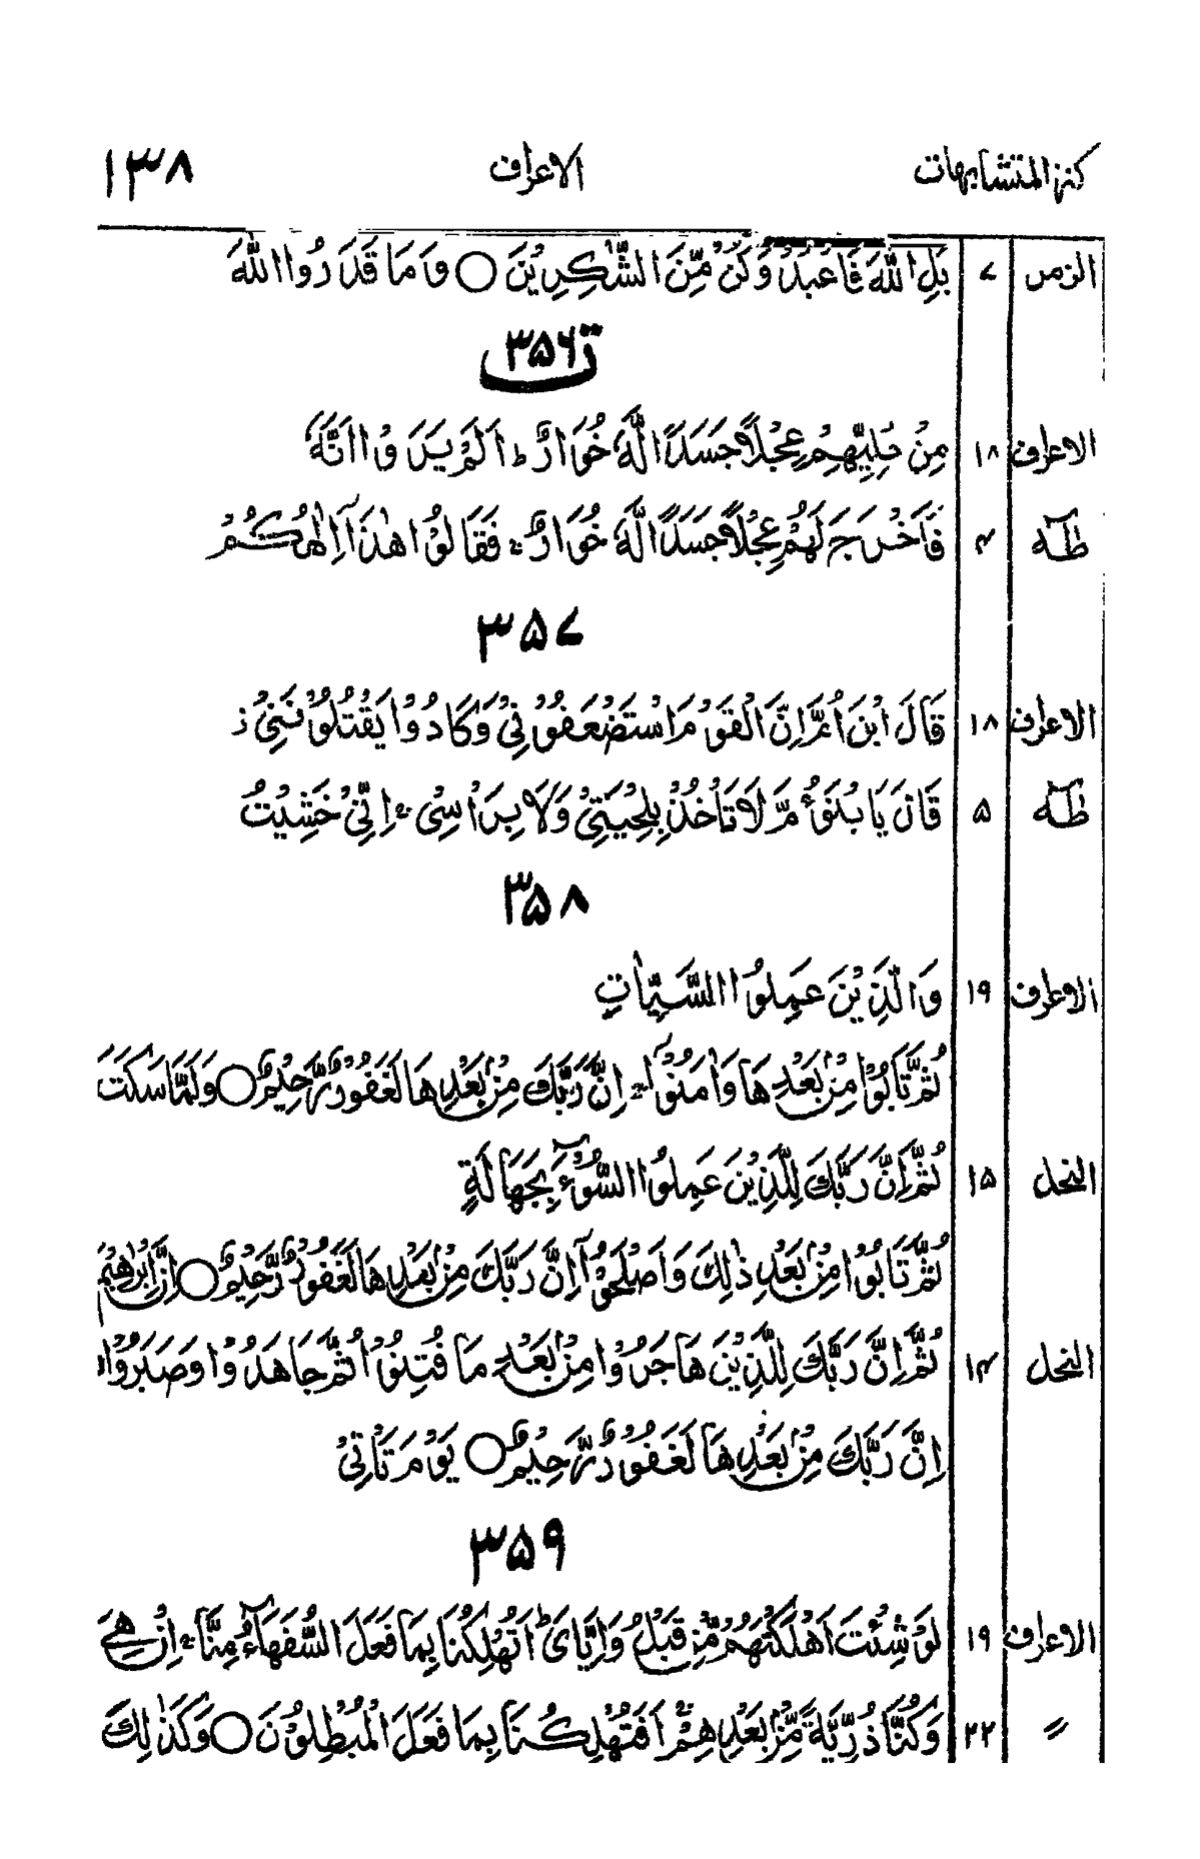 كنز المتشابهات الاعراف ۱۳۸
الزمر ۷ بَلِ اللّٰهَ فَاعْبُدْ وَكُنْ مِّنَ الشّٰكِرِيْنَ ○ وَمَا قَدَرُوا اللّٰهَ
ت ۳۵۶
الاعراف ۱۸ مِنْ حُلِيِّهِمْ عِجْلًا جَسَدًا لَّهٗ خُوَارٌ ؕ اَلَمْ يَرَوْا اَنَّهٗ
طٰهٰ ۴ فَاَخْرَجَ لَهُمْ عِجْلًا جَسَدًا لَّهٗ خُوَارٌ فَقَالُوْا هٰذَآ اِلٰهُكُمْ
۳۵۷
الاعراف ۱۸ قَالَ ابْنَ اُمَّ اِنَّ الْقَوْمَ اسْتَضْعَفُوْنِيْ وَكَادُوْا يَقْتُلُوْنَنِيْ ز
طٰهٰ ۵ قَالَ يَا بْنَؤُمَّ لَا تَاْخُذْ بِلِحْيَتِيْ وَلَا بِرَاْسِيْ اِنِّيْ خَشِيْتُ
۳۵۸
الاعراف ۱۹ وَالَّذِيْنَ عَمِلُوا السَّيِّاٰتِ
ثُمَّ تَابُوْا مِنْۢ بَعْدِهَا وَاٰمَنُوْٓا اِنَّ رَبَّكَ مِنْۢ بَعْدِهَا لَغَفُوْرٌ رَّحِيْمٌ ○ وَلَمَّا سَكَتَ
النحل ۱۵ ثُمَّ اِنَّ رَبَّكَ لِلَّذِيْنَ عَمِلُوا السُّوْٓءَ بِجَهَالَةٍ
ثُمَّ تَابُوْا مِنْۢ بَعْدِ ذٰلِكَ وَاَصْلَحُوْٓا اِنَّ رَبَّكَ مِنْۢ بَعْدِهَا لَغَفُوْرٌ رَّحِيْمٌ ○ اِنَّ اِبْرٰهِيْمَ
النحل ۱۴ ثُمَّ اِنَّ رَبَّكَ لِلَّذِيْنَ هَاجَرُوْا مِنْۢ بَعْدِ مَا فُتِنُوْا ثُمَّ جَاهَدُوْا وَصَبَرُوْٓا
اِنَّ رَبَّكَ مِنْۢ بَعْدِهَا لَغَفُوْرٌ رَّحِيْمٌ ○ يَوْمَ تَاْتِيْ
۳۵۹
الاعراف ۱۹ لَوْ شِئْتَ اَهْلَكْتَهُمْ مِّنْ قَبْلُ وَاِيَّايَ ؕ اَتُهْلِكُنَا بِمَا فَعَلَ السُّفَهَآءُ مِنَّا اِنْ هِيَ
〃 ۲۲ وَكُنَّا ذُرِّيَّةً مِّنْۢ بَعْدِهِمْ اَفَتُهْلِكُنَا بِمَا فَعَلَ الْمُبْطِلُوْنَ ○ وَكَذٰلِكَ